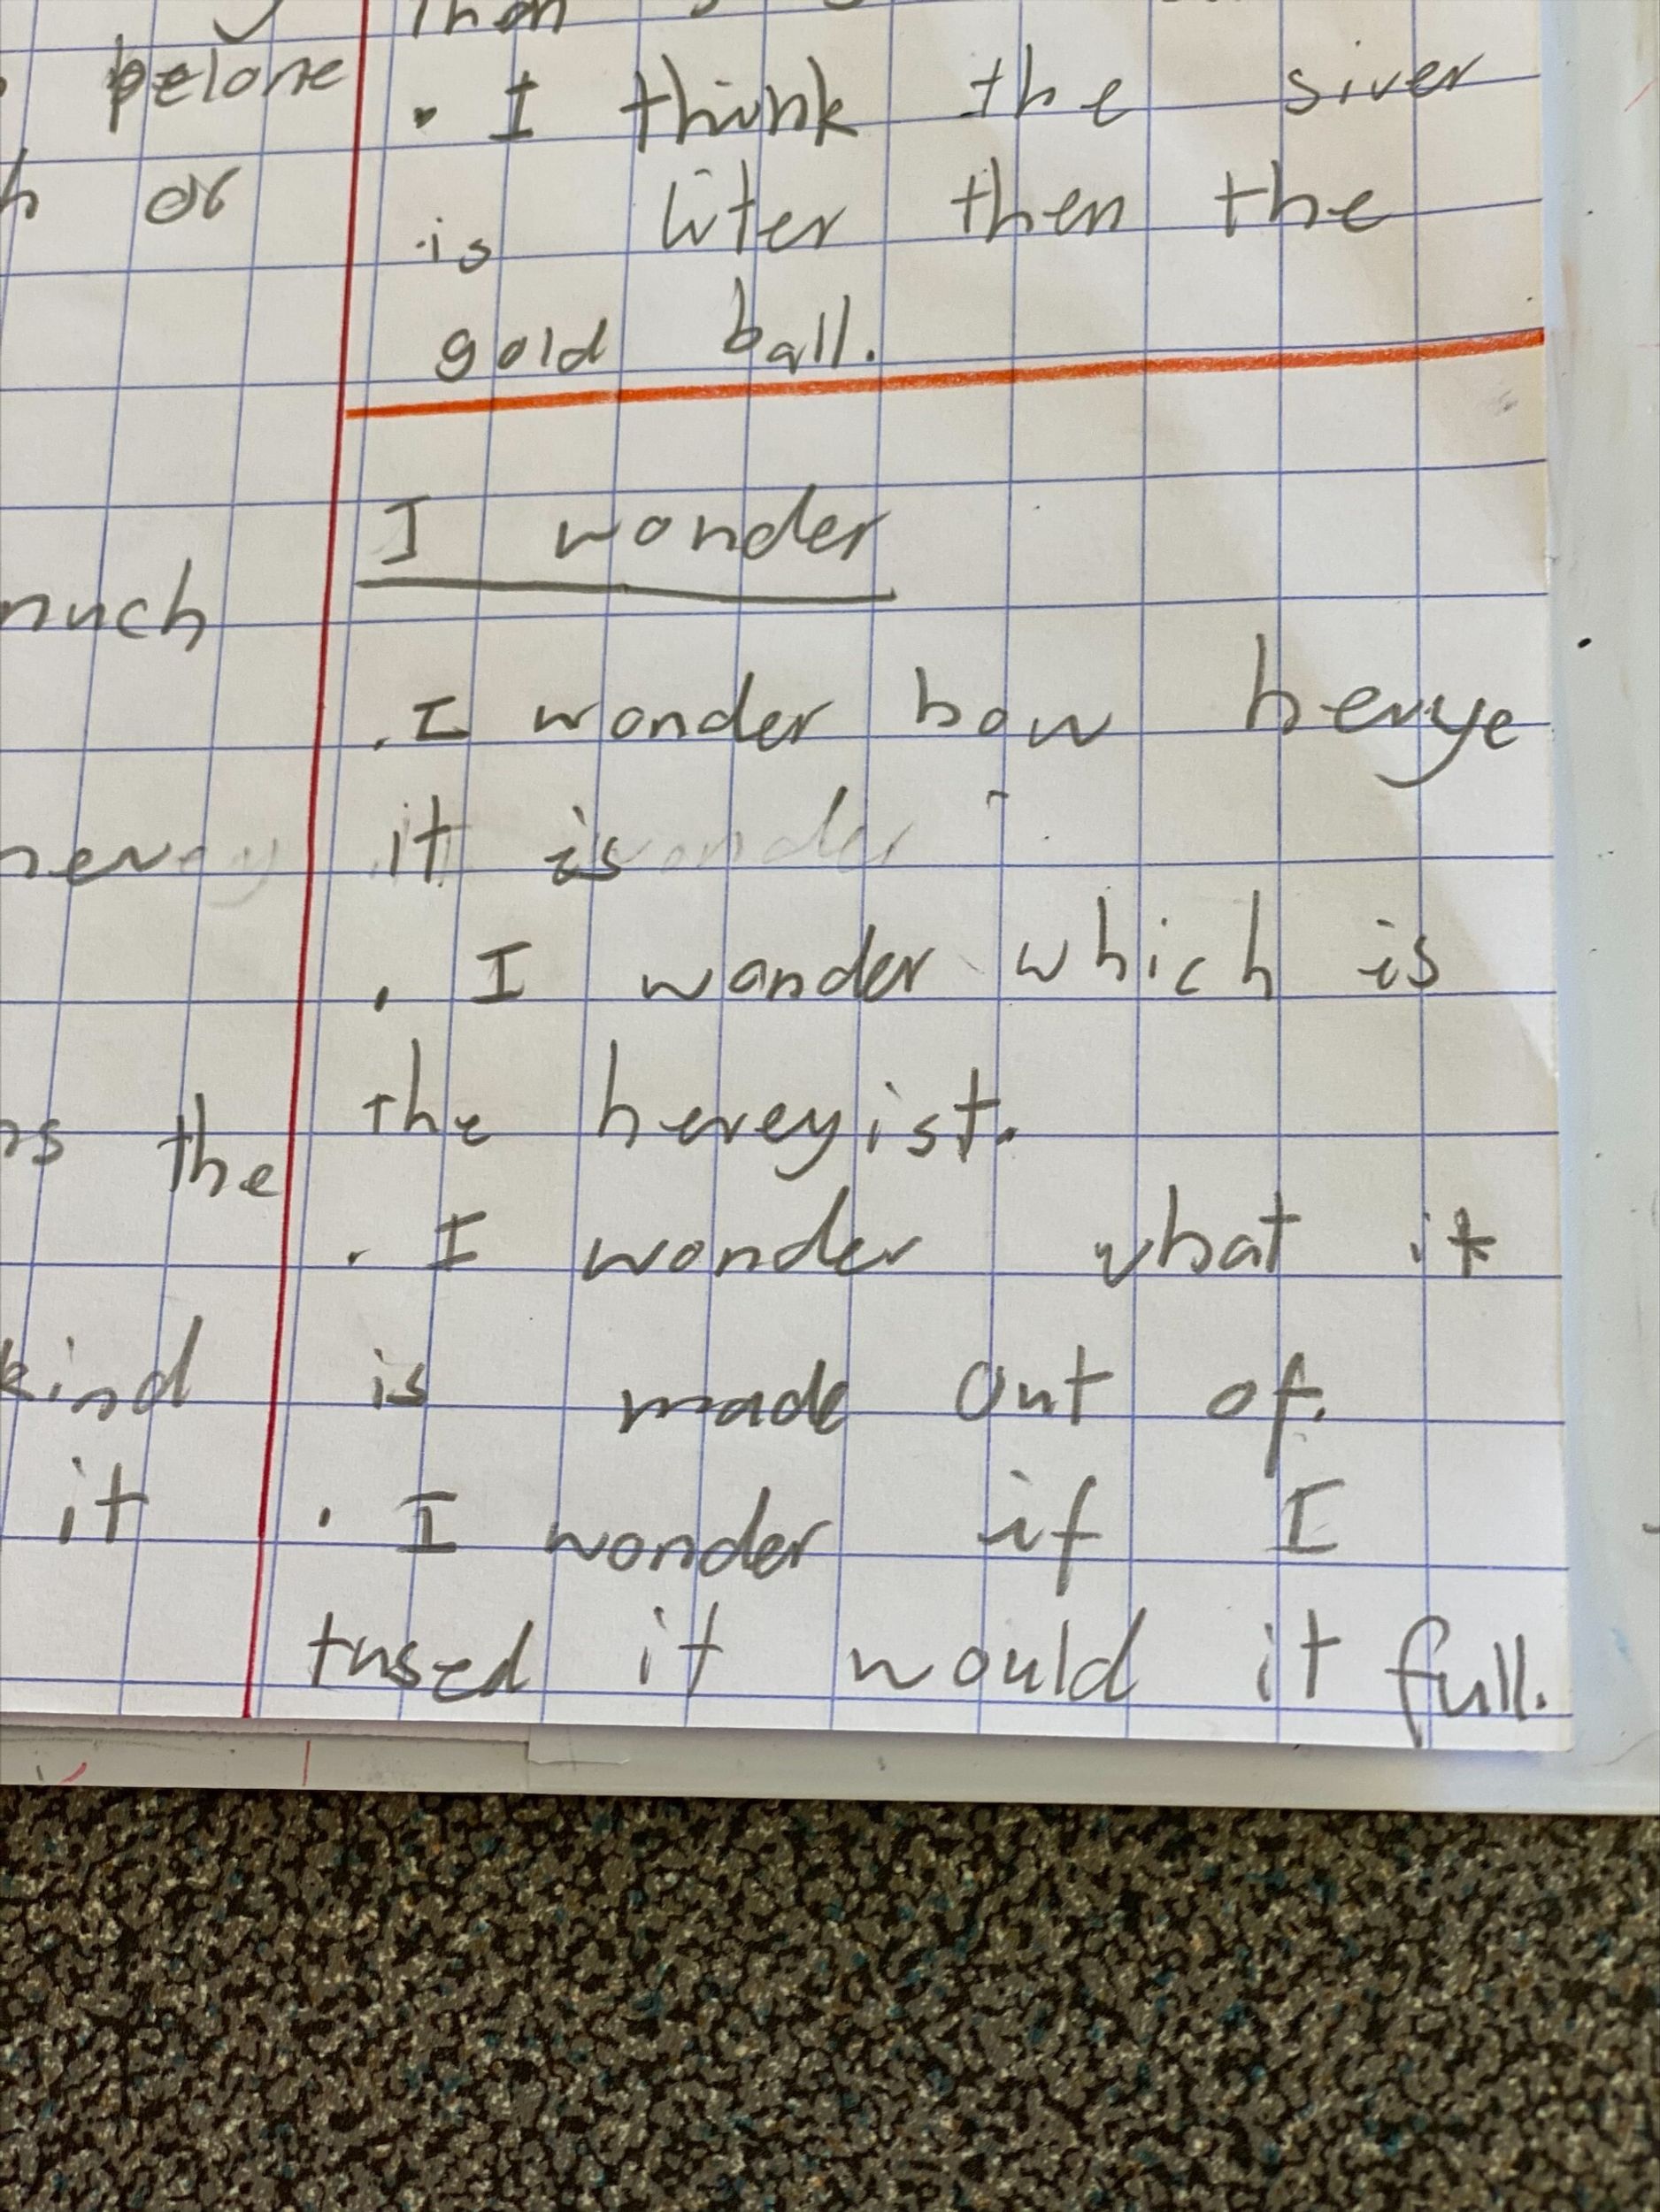 belone
or
much
the
kind
it
. I think the siver
is liter then the
gold ball.
I wonder
. I wonder how hevye
it is
. I wonder which is
the heveyist.
. I wonder what it
is made out of.
. I wonder if I
tused it would it full.